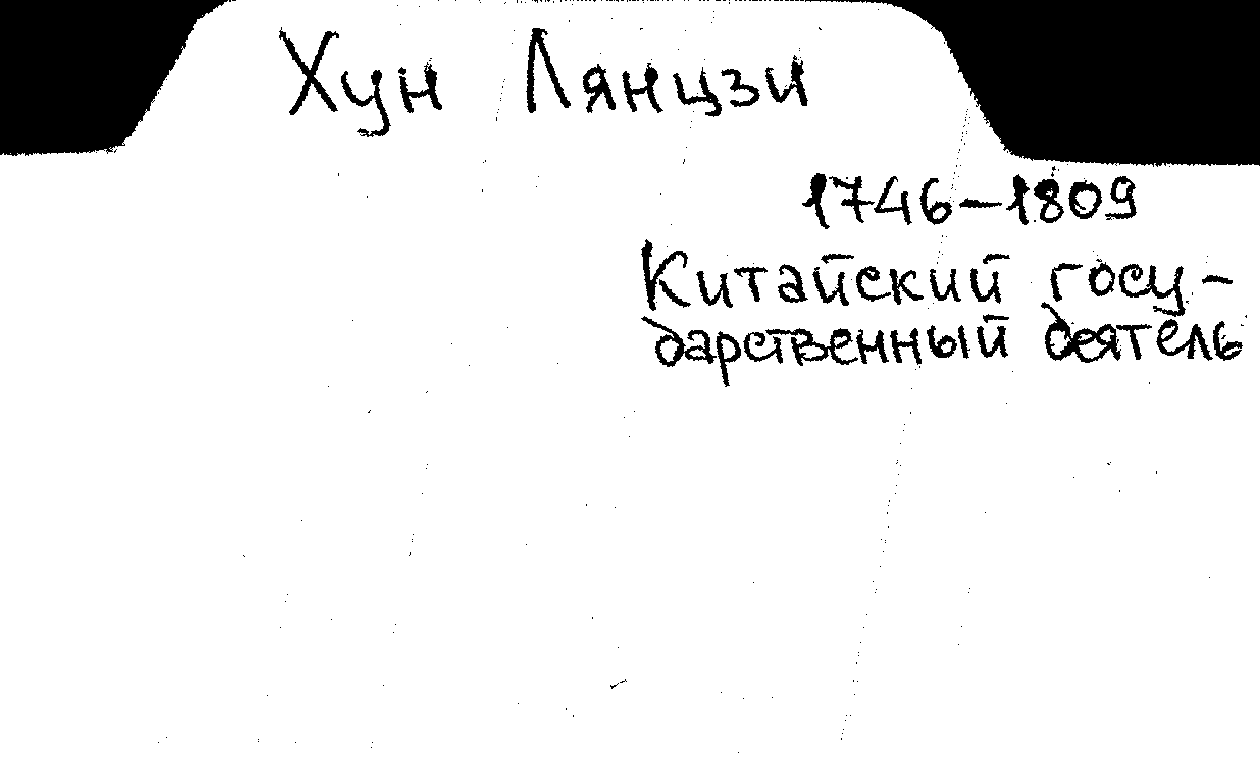 Хун Лянцзи
1746–1809
Китайский госу-
дарственный деятель